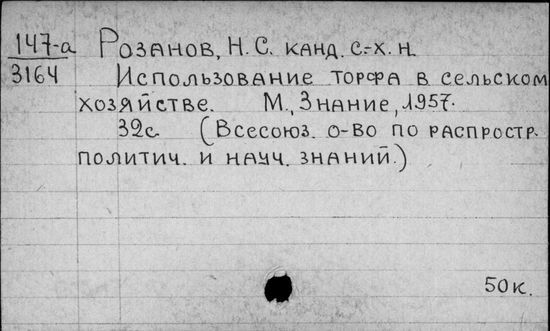 147-а Розанов, Н. С. канд. с.-х. н.
3164 Использование торфа в сельском
хозяйстве. М., Знание, 1957.
32с. (Всесоюз. о-во по распростр.
политич. и науч. знаний.)
50к.